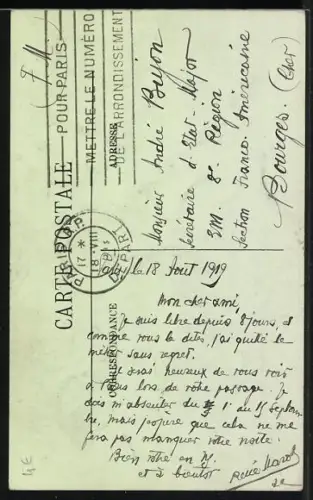 CARTE POSTALE
(F. M.)
POUR PARIS
METTRE LE NUMÉRO
DE L'ARRONDISSEMENT
ADRESSE
Monsieur André Bujon
Secrétaire d'Etat-Major
EM. 8e Région
Section Franco-Américaine
Bourges. (Cher)
PARIS
17 *
18 · VIII
DÉPART
CORRESPONDANCE
le 18 Août 1919
Mon cher ami,
Je suis libre depuis 8 jours, et
comme vous le dites, j'ai quitté le
métier sans regret.
Je serai heureux de vous voir
à Paris lors de votre passage. Je
dois m'absenter du 1er au 15 septem-
bre, mais j'espère que cela ne me
fera pas manquer votre visite.
Bien vôtre en
et à bientôt
René